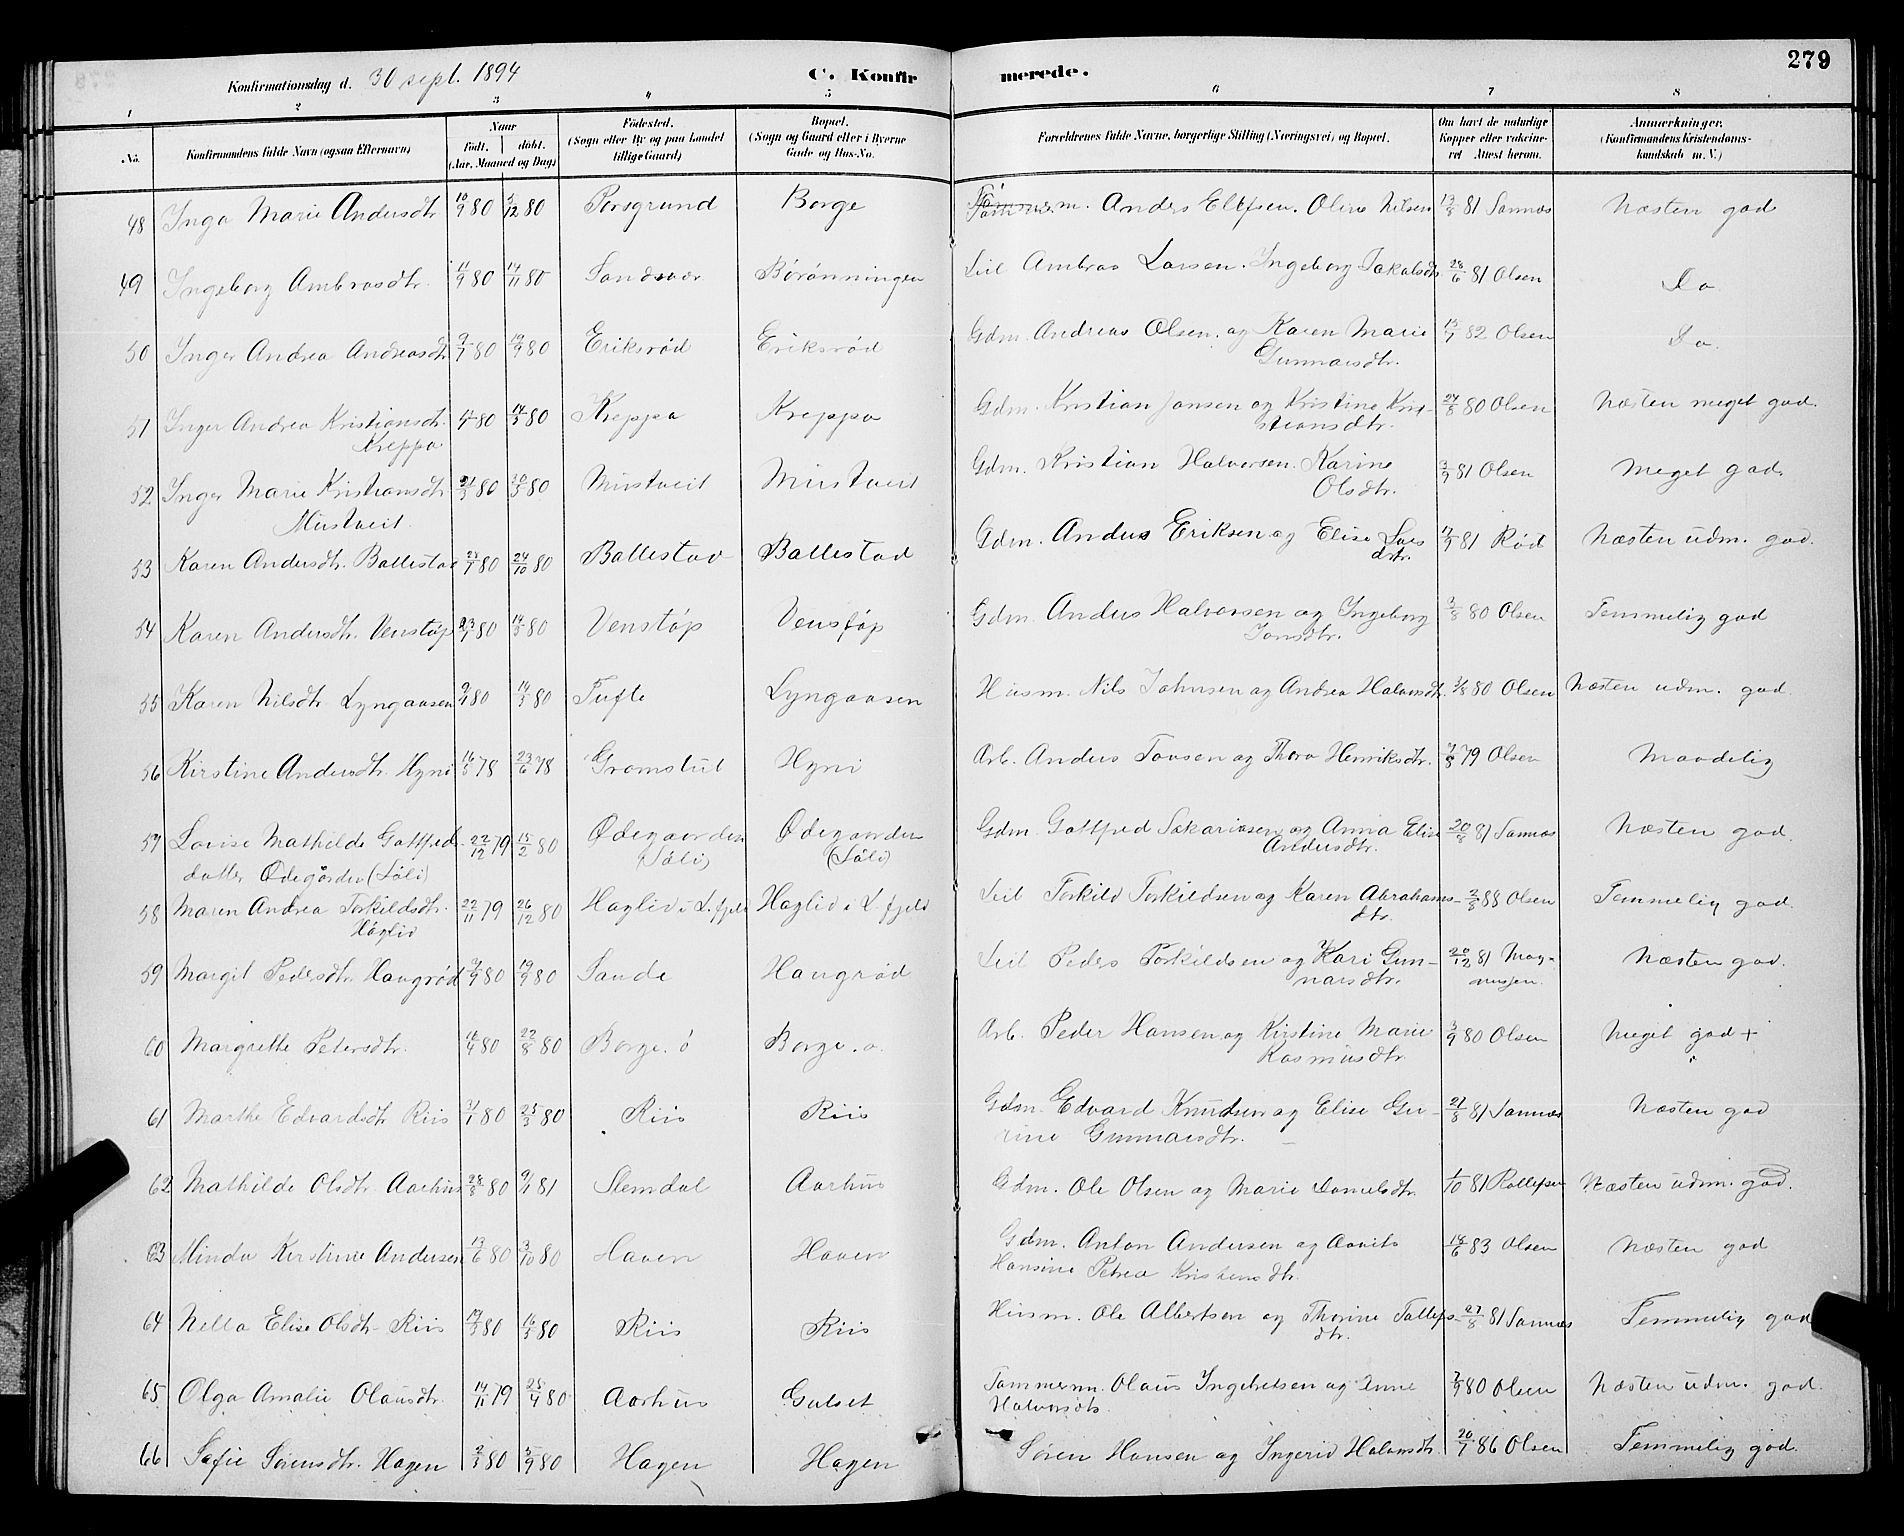 279
Konfirmationsdag d. 30 sept. 1894 C. Konfirmerede.
1 2 3 4 5 6 7 8
No. Konfirmandens fulde Navn (ogsaa Efternavn) Naar født. døbt. (Aar, Maaned og Dag) Fødested. (Sogn eller By og paa Landet tillige Gaard) Bopæl. (Sogn og Gaard eller i Byerne Gade og Hus-No. Forældrenes fulde Navne, borgerlige Stilling (Næringsvei) og Bopæl. Om havt de naturlige Kopper eller vaccineret Attest herom. Anmerkninger. (Konfirmandens Kristendomskundskab m. V.)
48 Inga Marie Andersdtr 10/9 80 5/12 80 Porsgrund Borge Anders Ellefsen. Oline Nilsen 13/8 81 Sannæs Næsten god
49 Ingeborg Ambrosdtr. 11/9 80 14/11 80 Sandsvær Børønningen Leil Ambros Larsen. Ingeborg Jakobsdtr. 28/6 81 Olsen Do
50 Inger Andrea Andreasdtr 9/7 80 19/9 80 Eriksrød Eriksrød Gdm. Andreas Olsen. og Karen Marie 82 Olsen Do.
Gunnarsdtr.
51 Inger Andrea Kristiansdtr. 80 14/3 80 Kreppa Kreppa Gdm. Kristian Jansen og Kristine Kri- 24/8 80 Olsen Næsten meget god.
Kreppa stiansdtr.
52 Inger Marie Kristiansdtr 80 80 Mustveit Mustveit Gdm. Kristian Halvorsen. Karine 81 Olsen Meget god
Mustveit. Olsdtr.
53 Karen Andersdtr. Ballestad 80 24/10 80 Ballestad Ballestad Gdm. Anders Eriksen og Elise Lars 81 Rød Næsten udm. god.
dtr.
54 Karen Andersdtr. Venstøp 80 14/3 80 Venstøp Venstøp Gdm. Anders Halvorsen og Ingeborg 80 Olsen Temmelig god
Jonsdtr.
55 Karen Nilsdtr Lyngaasen 80 14/3 80 Tufte Lyngaasen Husm. Nils Johnsen og Andrea Halvorsdtr. 80 Olsen Næsten udm. god.
56 Kirstine Andersdtr. Hyni 16/5 78 23/6 78 Gromstul Hyni Arb. Anders Tovsen og Thora Henriksdtr. 79 Olsen Maadelig
57 Lovise Mathilde Gottfreds 22/12 79 15/2 80 Ødegaarden Ødegaarden Gdm. Gottfred Sakariasen og Anna Elise 20/8 81 Sannæs Næsten god.
datter Ødegården (Søli) (Søli) (Søli) Andersdtr.
58 Maren Andrea Torkildsdtr. 22/11 79 26/12 80 Høglid i L. fjeld Høglid i L. fjeld Leil Torkild Torkildsen og Karen Abrahams- 88 Olsen Temmelig god.
Høglid dtr.
59 Margit Pedersdtr. Haugrød 80 19/9 80 Sande Haugrød Leil Peder Torkildsen og Kari Gun- 20/12 81 Mag- Næsten god.
narsdtr. nussen.
60 Margrethe Petersdtr. 80 22/8 80 Borge. ø Borge. ø. Arb. Peder Hansen og Kirstine Marie 3/9 80 Olsen Meget god +
Rasmusdtr
61 Marthe Edvardsdtr Riis 80 25/3 80 Riis Riis Gdm. Edvard Knudsen og Elise Gu- 21/8 81 Sannæs Næsten god
rine Gunnarsdtr.
62 Mathilde Olsdtr Aarhus 28/8 80 81 Slemdal Aarhus Gdm. Ole Olsen og Marie Danielsdtr. 1/10 81 Rollefsen Næsten udm. god.
63 Minda Kirstine Andersen 13/6 80 3/10 80 Haven Haven Gdm. Anton Andersen og 83 Olsen Næsten god
Hansine Petrea Kristensdtr.
64 Nella Elise Olsdtr Riis 80 16/5 80 Riis Riis Husm. Ole Albertsen og Thorine Tollefs- 27/8 81 Sannæs Temmelig god
dtr.
65 Olga Amalie Olausdtr. 14/11 79 25/4 80 Aarhus Gulset Tømmerm. Olaus Ingebretsen og Anne 80 Olsen Næsten udm. god.
Halvorsdtr.
66 Sofie Sørensdtr. Hagen 80 5/9 80 Hagen Hagen Søren Hansen og Ingerid Halvorsdtr. 20/7 86 Olsen Temmelig god.